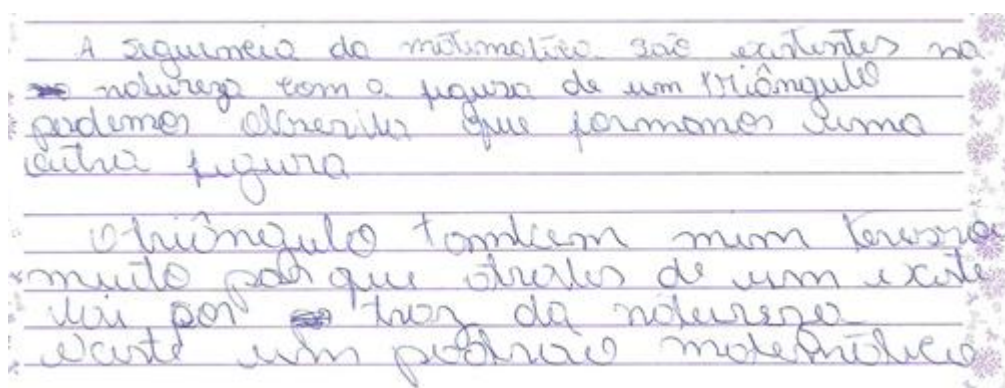 A siquencia da matematica são existentes na
natureza com a figura de um triângulo
podemos que formamos uma
outra figura
O triângulo tambem mim teressa
muito por que de um existe
por traz da natureza
existe um padrão matemático